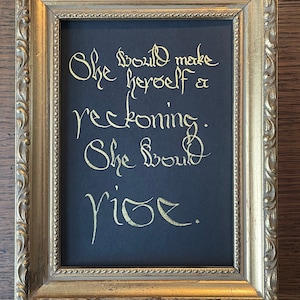 She would make
herself a
reckoning.
She would
rise.